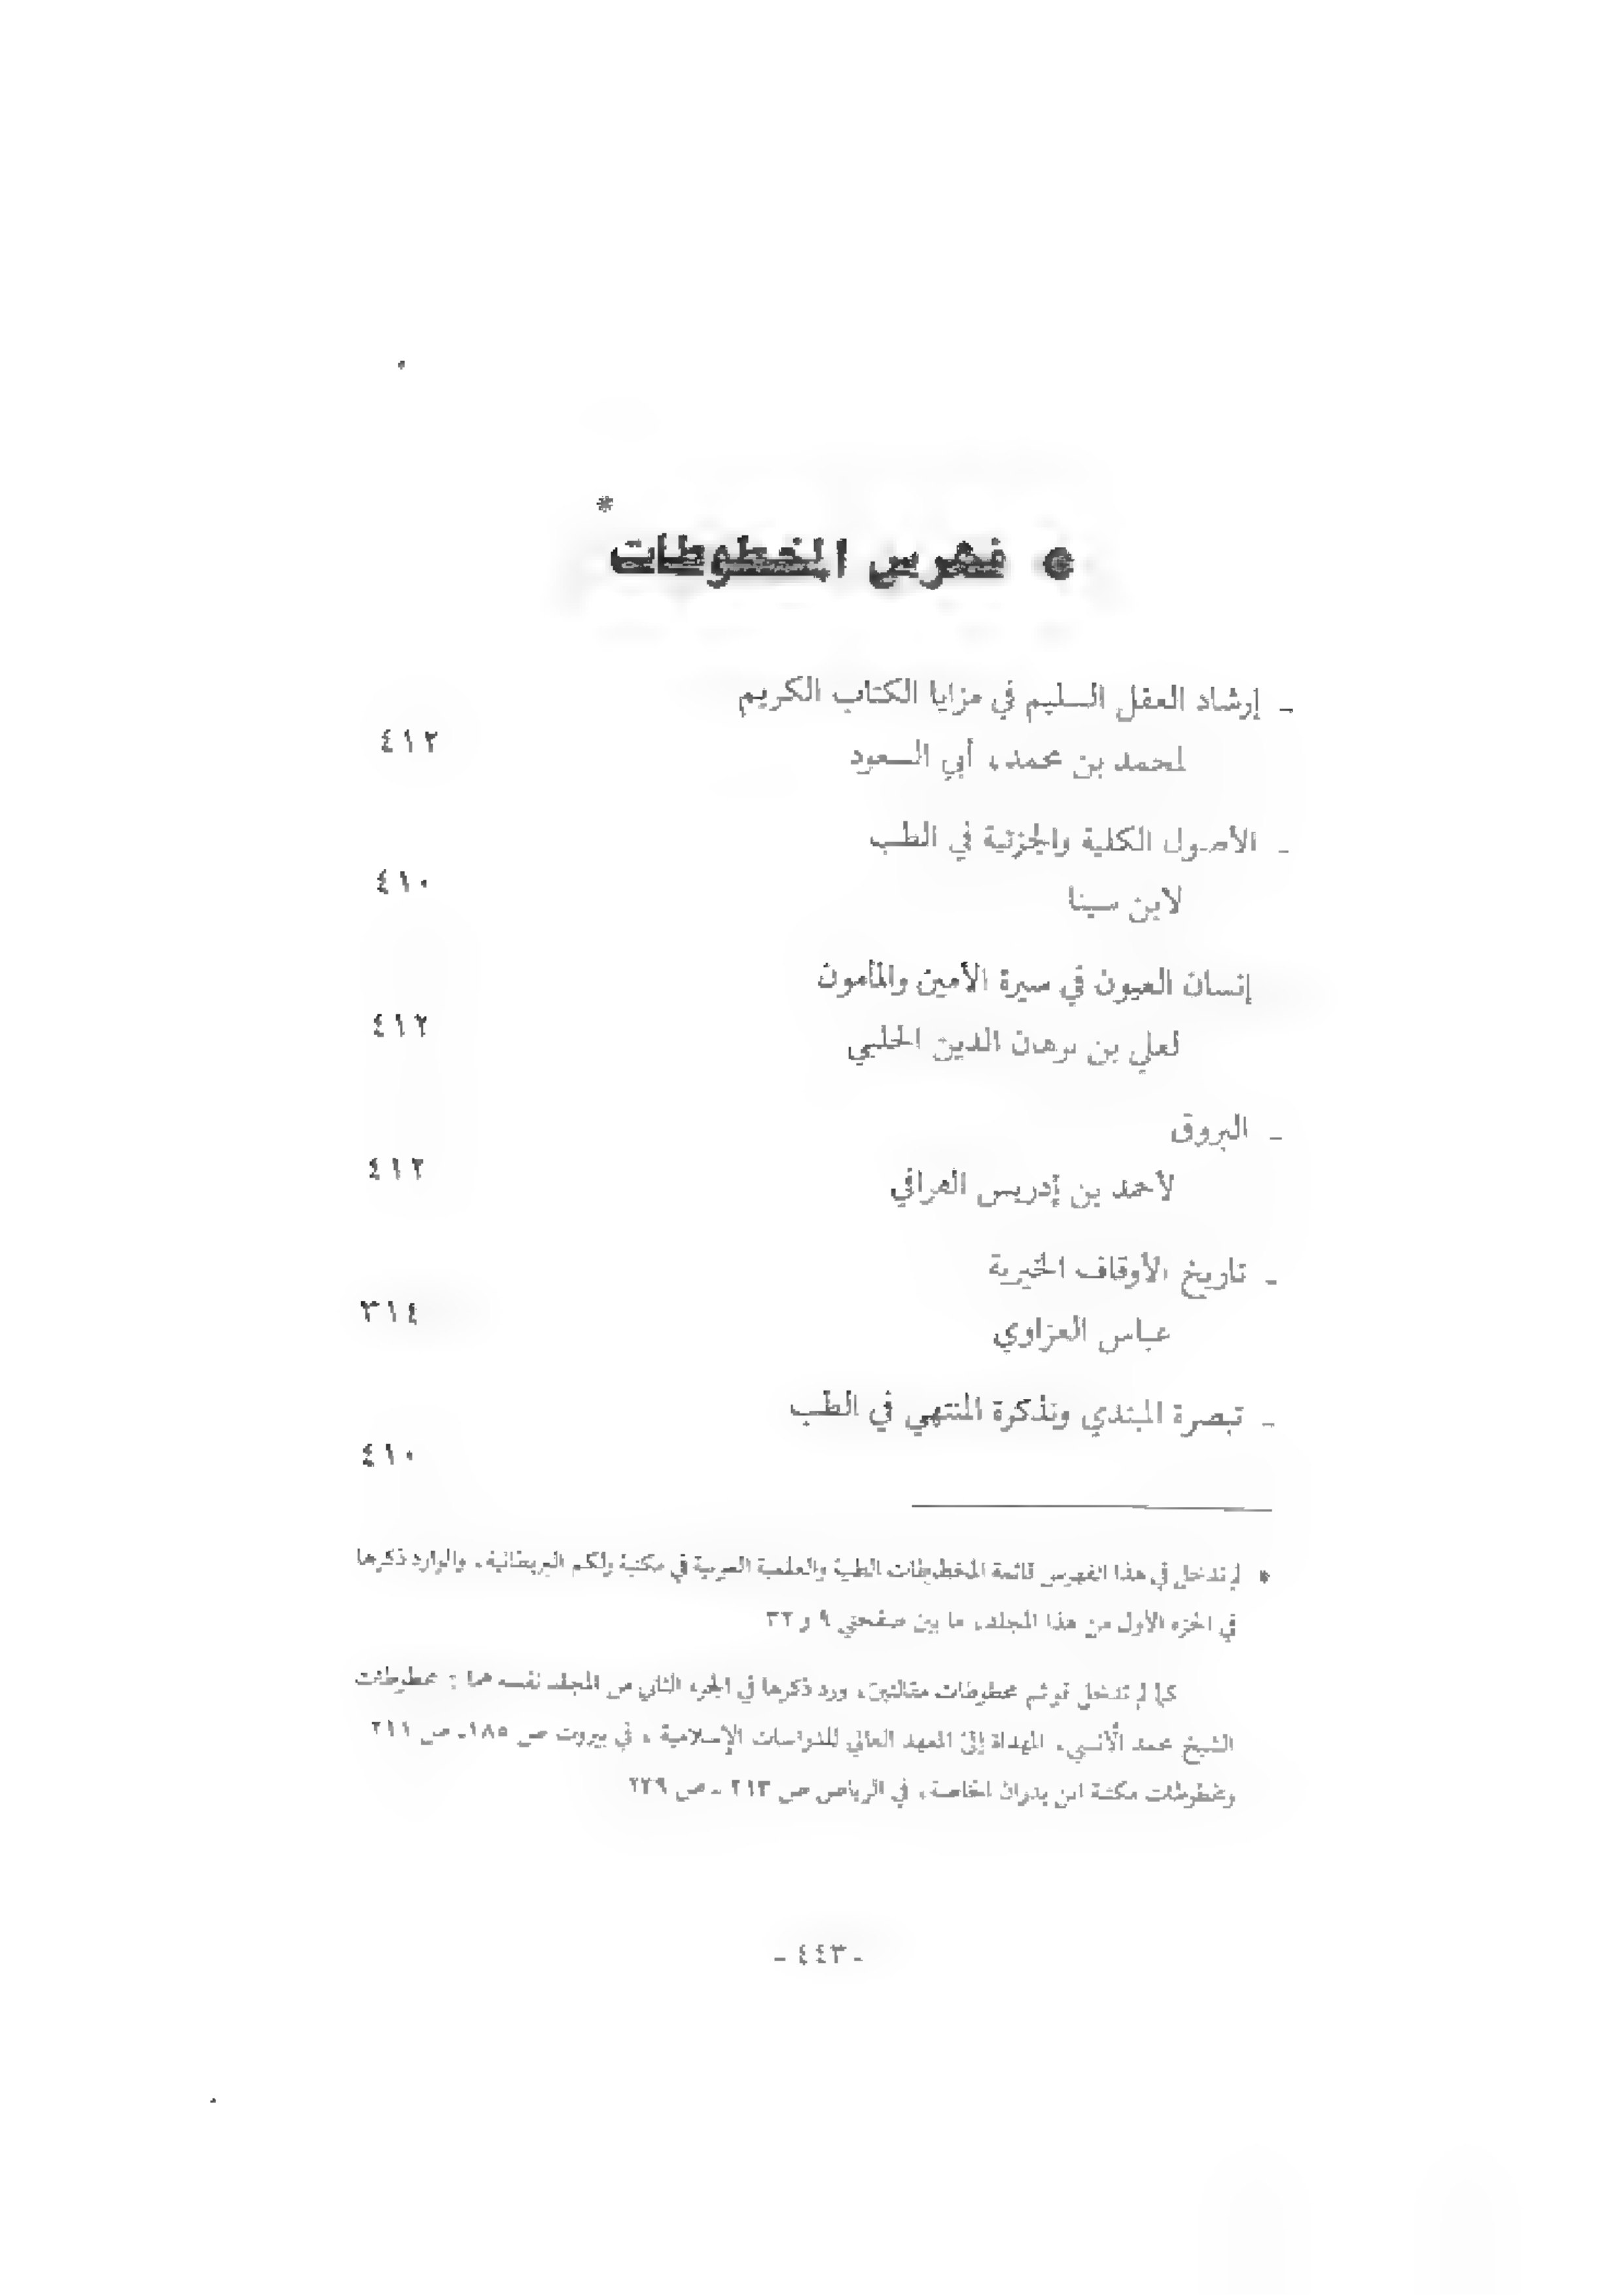 *
● فهرس المخطوطات
ـ إرشاد العقل السليم في مزايا الكتاب الكريم
لمحمد بن محمد، أبي السعود ٤١٢
ـ الأصول الكلية والجزئية في الطب
لابن سينا ٤١٠
إنسان العيون في سيرة الأمين والمأمون
لعلي بن برهان الدين الحلبي ٤١٢
ـ البروق
لأحمد بن إدريس القرافي ٤١٢
ـ تاريخ الأوقاف الخيرية
عباس العزاوي ٣١٤
ـ تبصرة المبتدي وتذكرة المنتهي في الطب
٤١٠
* لم تدخل في هذا الفهرس قائمة المخطوطات الطبية والعلمية العربية في مكتبة ولكم البريطانية، والوارد ذكرها
في الجزء الأول من هذا المجلد، ما بين صفحتي ٩ و ٣٢
كما لم تدخل مخطوطات مقالتين، ورد ذكرها في الجزء الثاني من المجلد نفسه هما : مخطوطات
الشيخ محمد الأنسي، المهداة إلى المعهد العالي للدراسات الإسلامية ، في بيروت ص ١٨٥ـ ص ٢١١
ومخطوطات مكتبة ابن بدران الخاصة، في الرياض ص ٢١٣ ـ ص ٢٢٩
ـ ٤٤٣ ـ